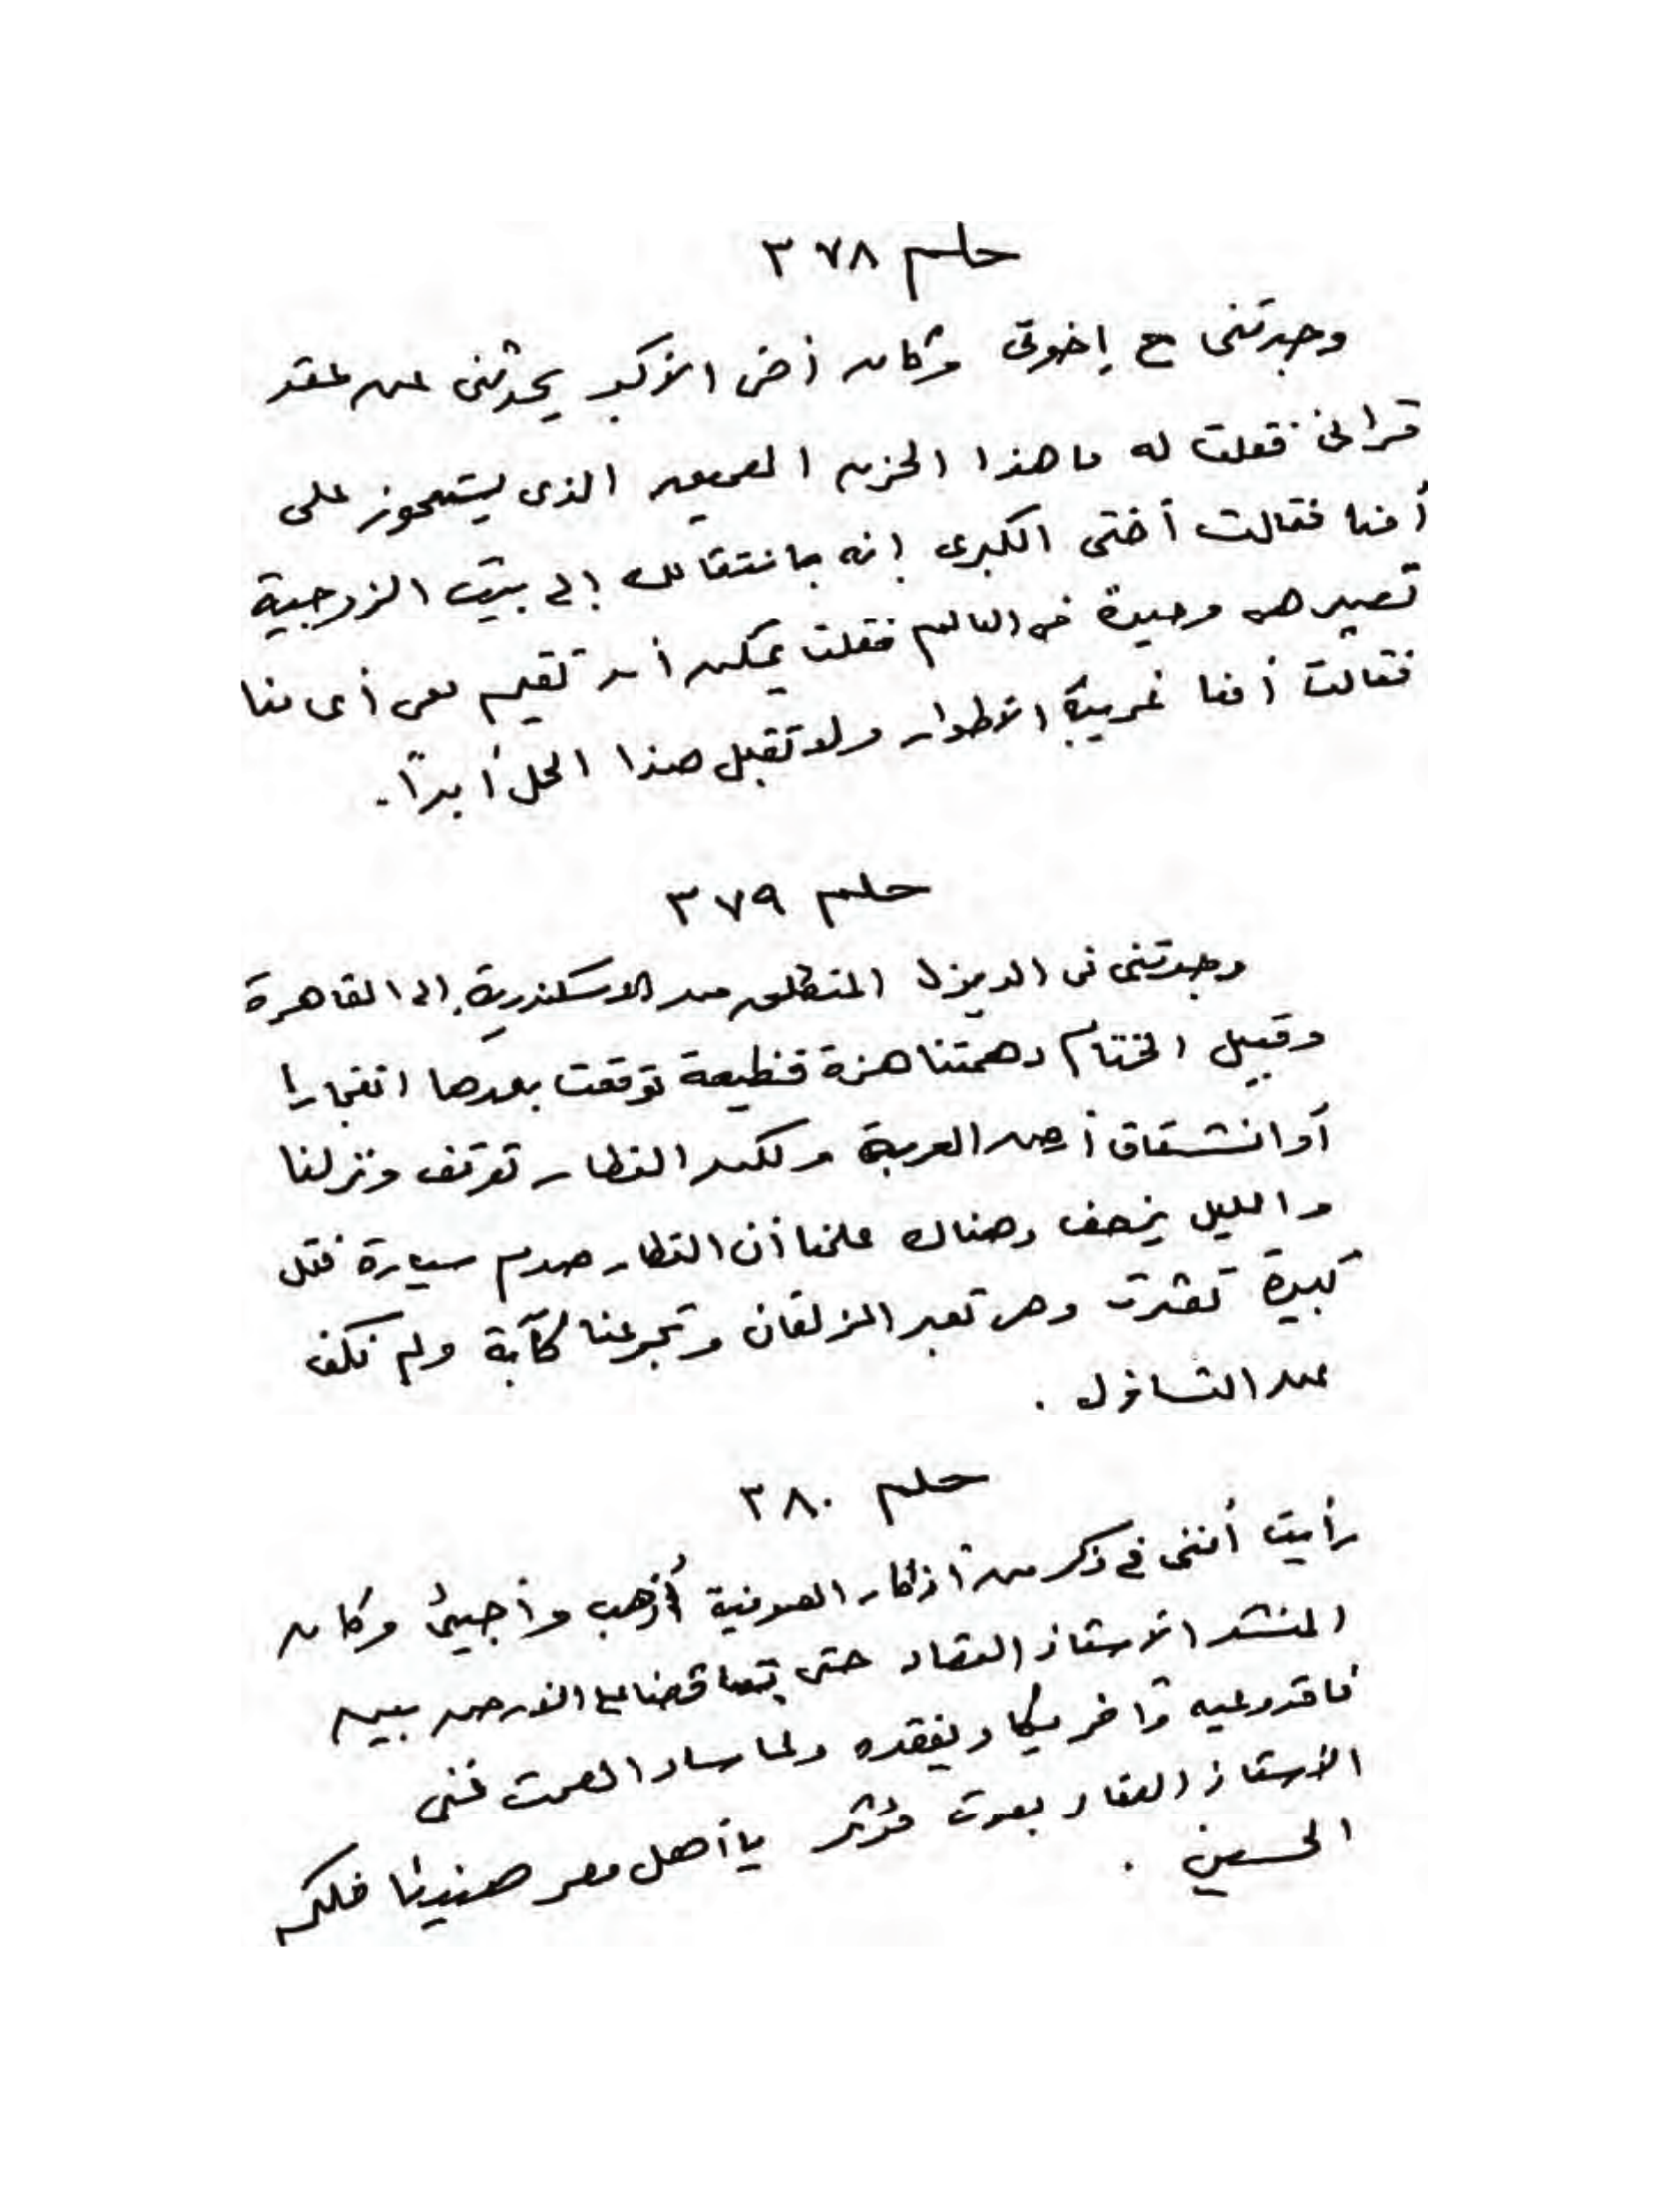 حلم ٣٧٨
وجدتنى مع إخوتى وكان أخى الأكبر يحدثنى عن عقد
قرانى فقلت له ما هذا الحزن العميق الذى يستحوز على
أمنا فقالت أختى الكبرى إنه بانتقالك إلى بيت الزوجية
تصير هى وحيدة فى العالم فقلت يمكن أن تقيم مع أى منا
فقالت أمنا غريبة الأطوار ولا تقبل هذا الحل أبداً.
حلم ٣٧٩
وجدتنى فى الديزل المنطلق من الاسكندرية إلى القاهرة
وقبيل الختام دهمتنا هزة فظيعة توقعت بعدها انفجارا
أو انشقاق أرض العربة ولكن القطار توقف ونزلنا
والليل يزحف وهناك علمنا أن القطار صدم سيارة نقل
كبيرة تعثرت وهى تعبر المزلقان وتجرعنا كآبة ولم نكف
عن التساؤل .
حلم ٣٨٠
رأيت أننى فى ذكر من أذكار الصوفية أذهب وأجيئ وكان
المنشد الاستاذ العقاد حتى مع النورس بين
فاقد وعيه وآخر يكاد يفقده ولما ساد الصمت غنى
الأستاذ العقاد بصوت مؤثر يا أهل مصر هنيئا فلكم
الحسين .